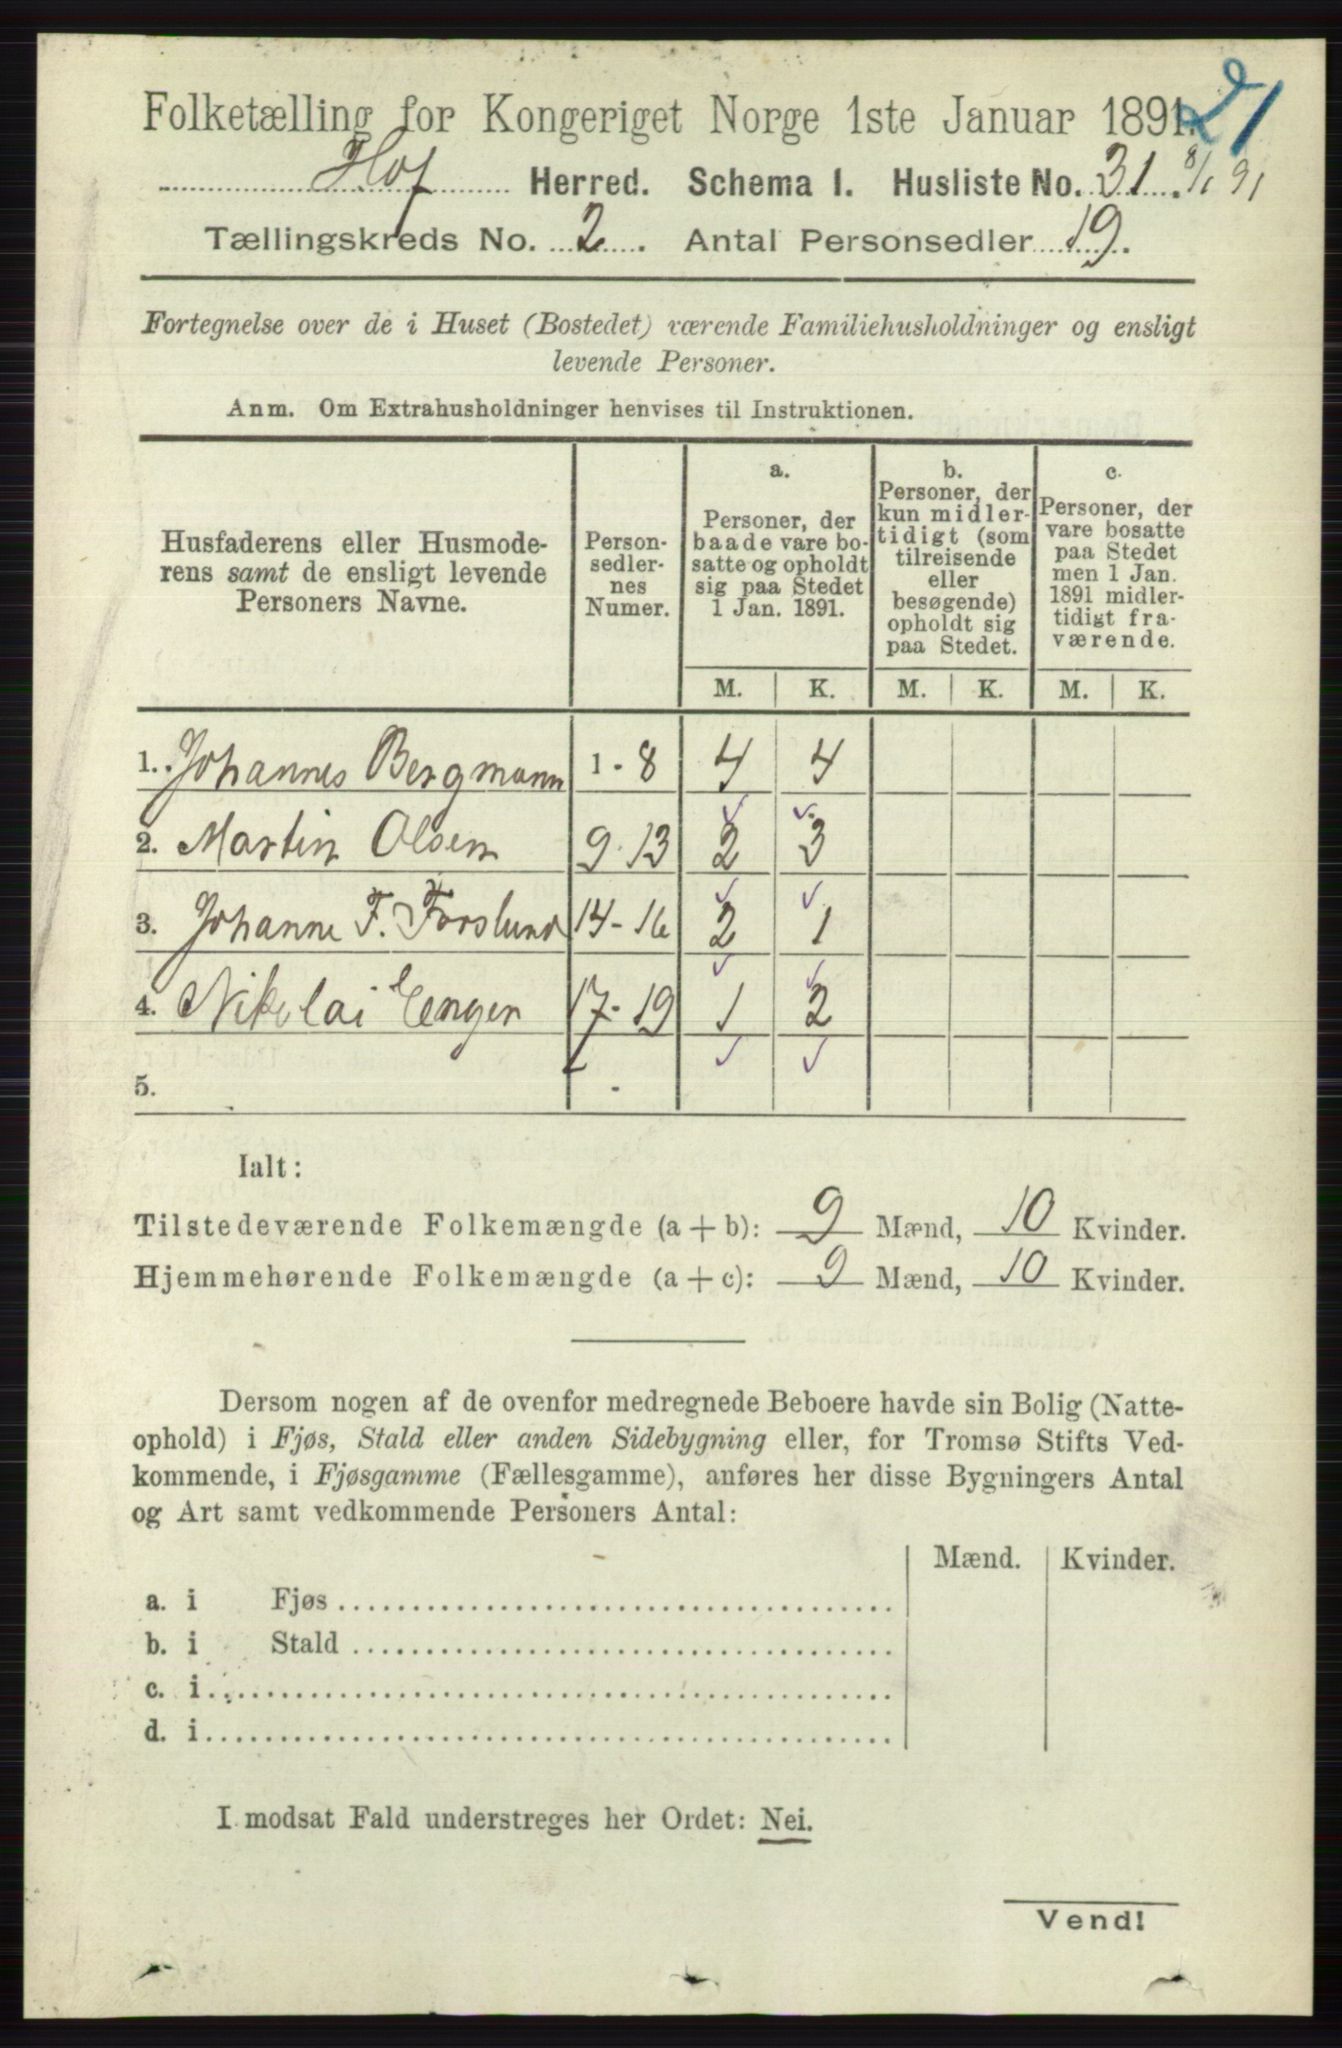 21
Folketælling for Kongeriget Norge 1ste Januar 1891.
Hof Herred. Schema 1. Husliste No. 31. 8/1 91
Tællingskreds No. 2. Antal Personsedler 19.
Fortegnelse over de i Huset (Bostedet) værende Familiehusholdninger og ensligt
levende Personer.
Anm. Om Extrahusholdninger henvises til Instruktionen.
Husfaderens eller Husmode-
rens samt de ensligt levende
Personers Navne.
Person-
sedler-
nes
Numer.
a.
Personer, der
baade vare bo-
satte og opholdt
sig paa Stedet
1 Jan. 1891.
b.
Personer, der
kun midler-
tidigt (som
tilreisende
eller
besøgende)
opholdt sig
paa Stedet.
c.
Personer, der
vare bosatte
paa Stedet
men 1 Jan.
1891 midler-
tidigt fra-
værende.
M. K. M. K. M. K.
1. Johannes Bergmann 1 - 8 4 4
2. Martin Olsen 9 - 13 2 3
3. Johanne F. Forslund 14 - 16 2 1
4. Nikolai Engen 17 - 19 1 2
5. -
Ialt:
Tilstedeværende Folkemængde (a + b): 9 Mænd, 10 Kvinder.
Hjemmehørende Folkemængde (a + c): 9 Mænd, 10 Kvinder.
Dersom nogen af de ovenfor medregnede Beboere havde sin Bolig (Natte-
ophold) i Fjøs, Stald eller anden Sidebygning eller, for Tromsø Stifts Ved-
kommende, i Fjøsgamme (Fællesgamme), anføres her disse Bygningers Antal
og Art samt vedkommende Personers Antal:
Mænd. Kvinder.
a. i Fjøs
b. i Stald
c. i
d. i
I modsat Fald understreges her Ordet: Nei.
Vend!